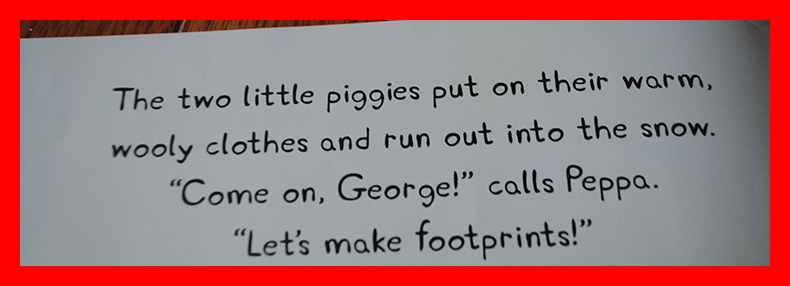 The two little piggies put on their warm,
wooly clothes and run out into the snow.
“Come on, George!” calls Peppa.
“Let's make footprints!”